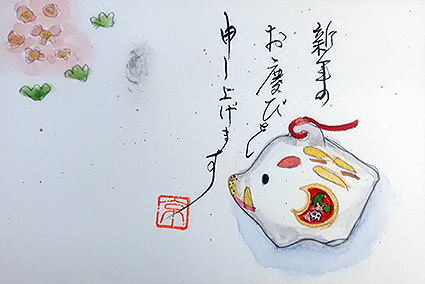 新年の
お慶びを
申し上げます
京